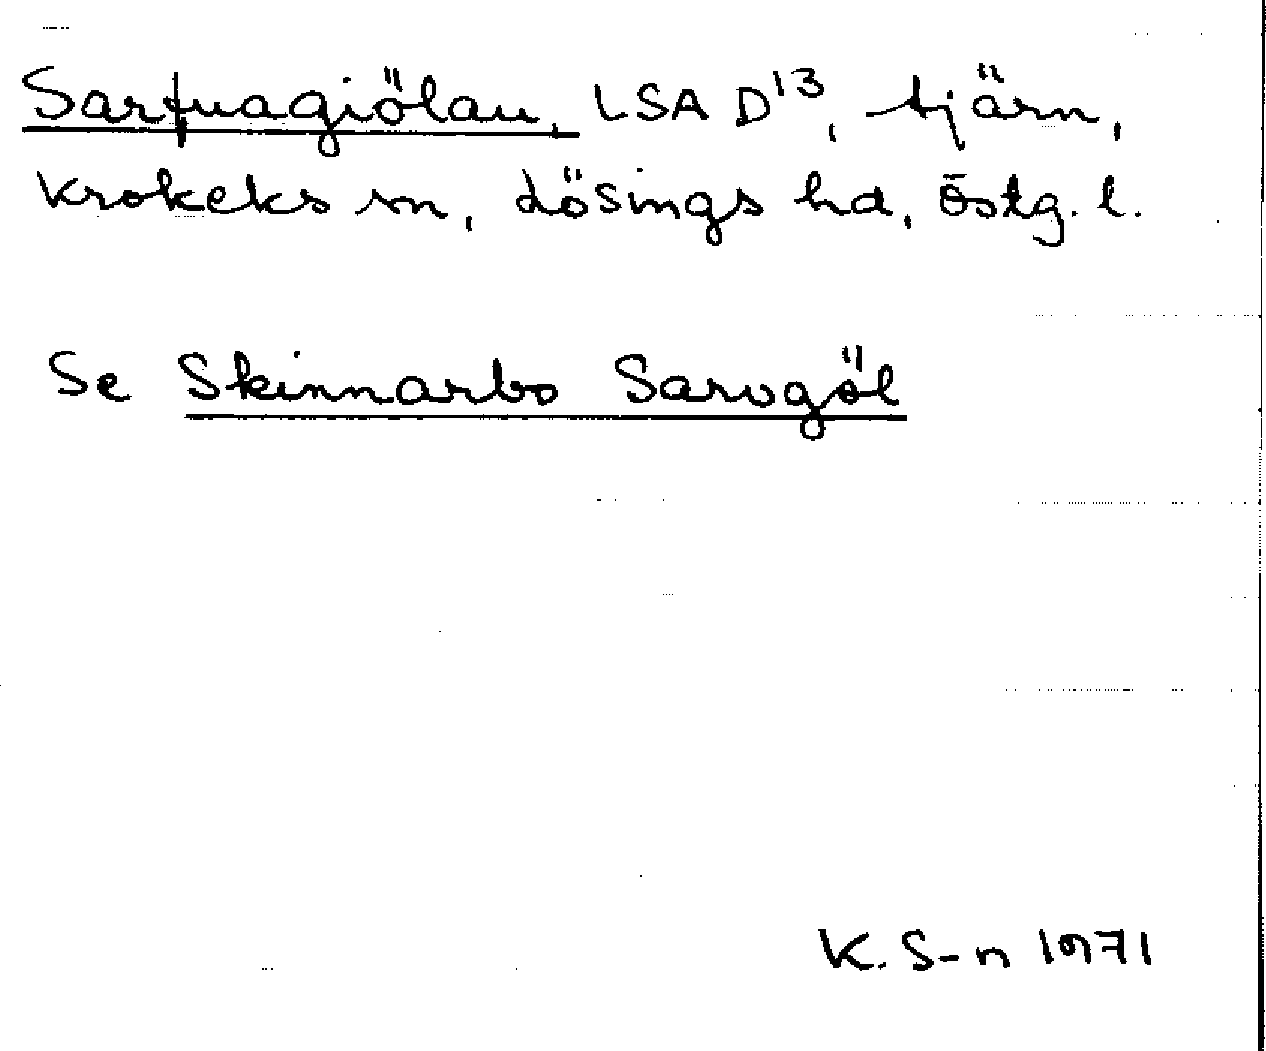 Sarfuagiölan, LSA D13, tjärn,
Krokeks sn, Lösings hd, Östg. l.
Se Skinnarbo Sarvgöl
K. S-n 1971